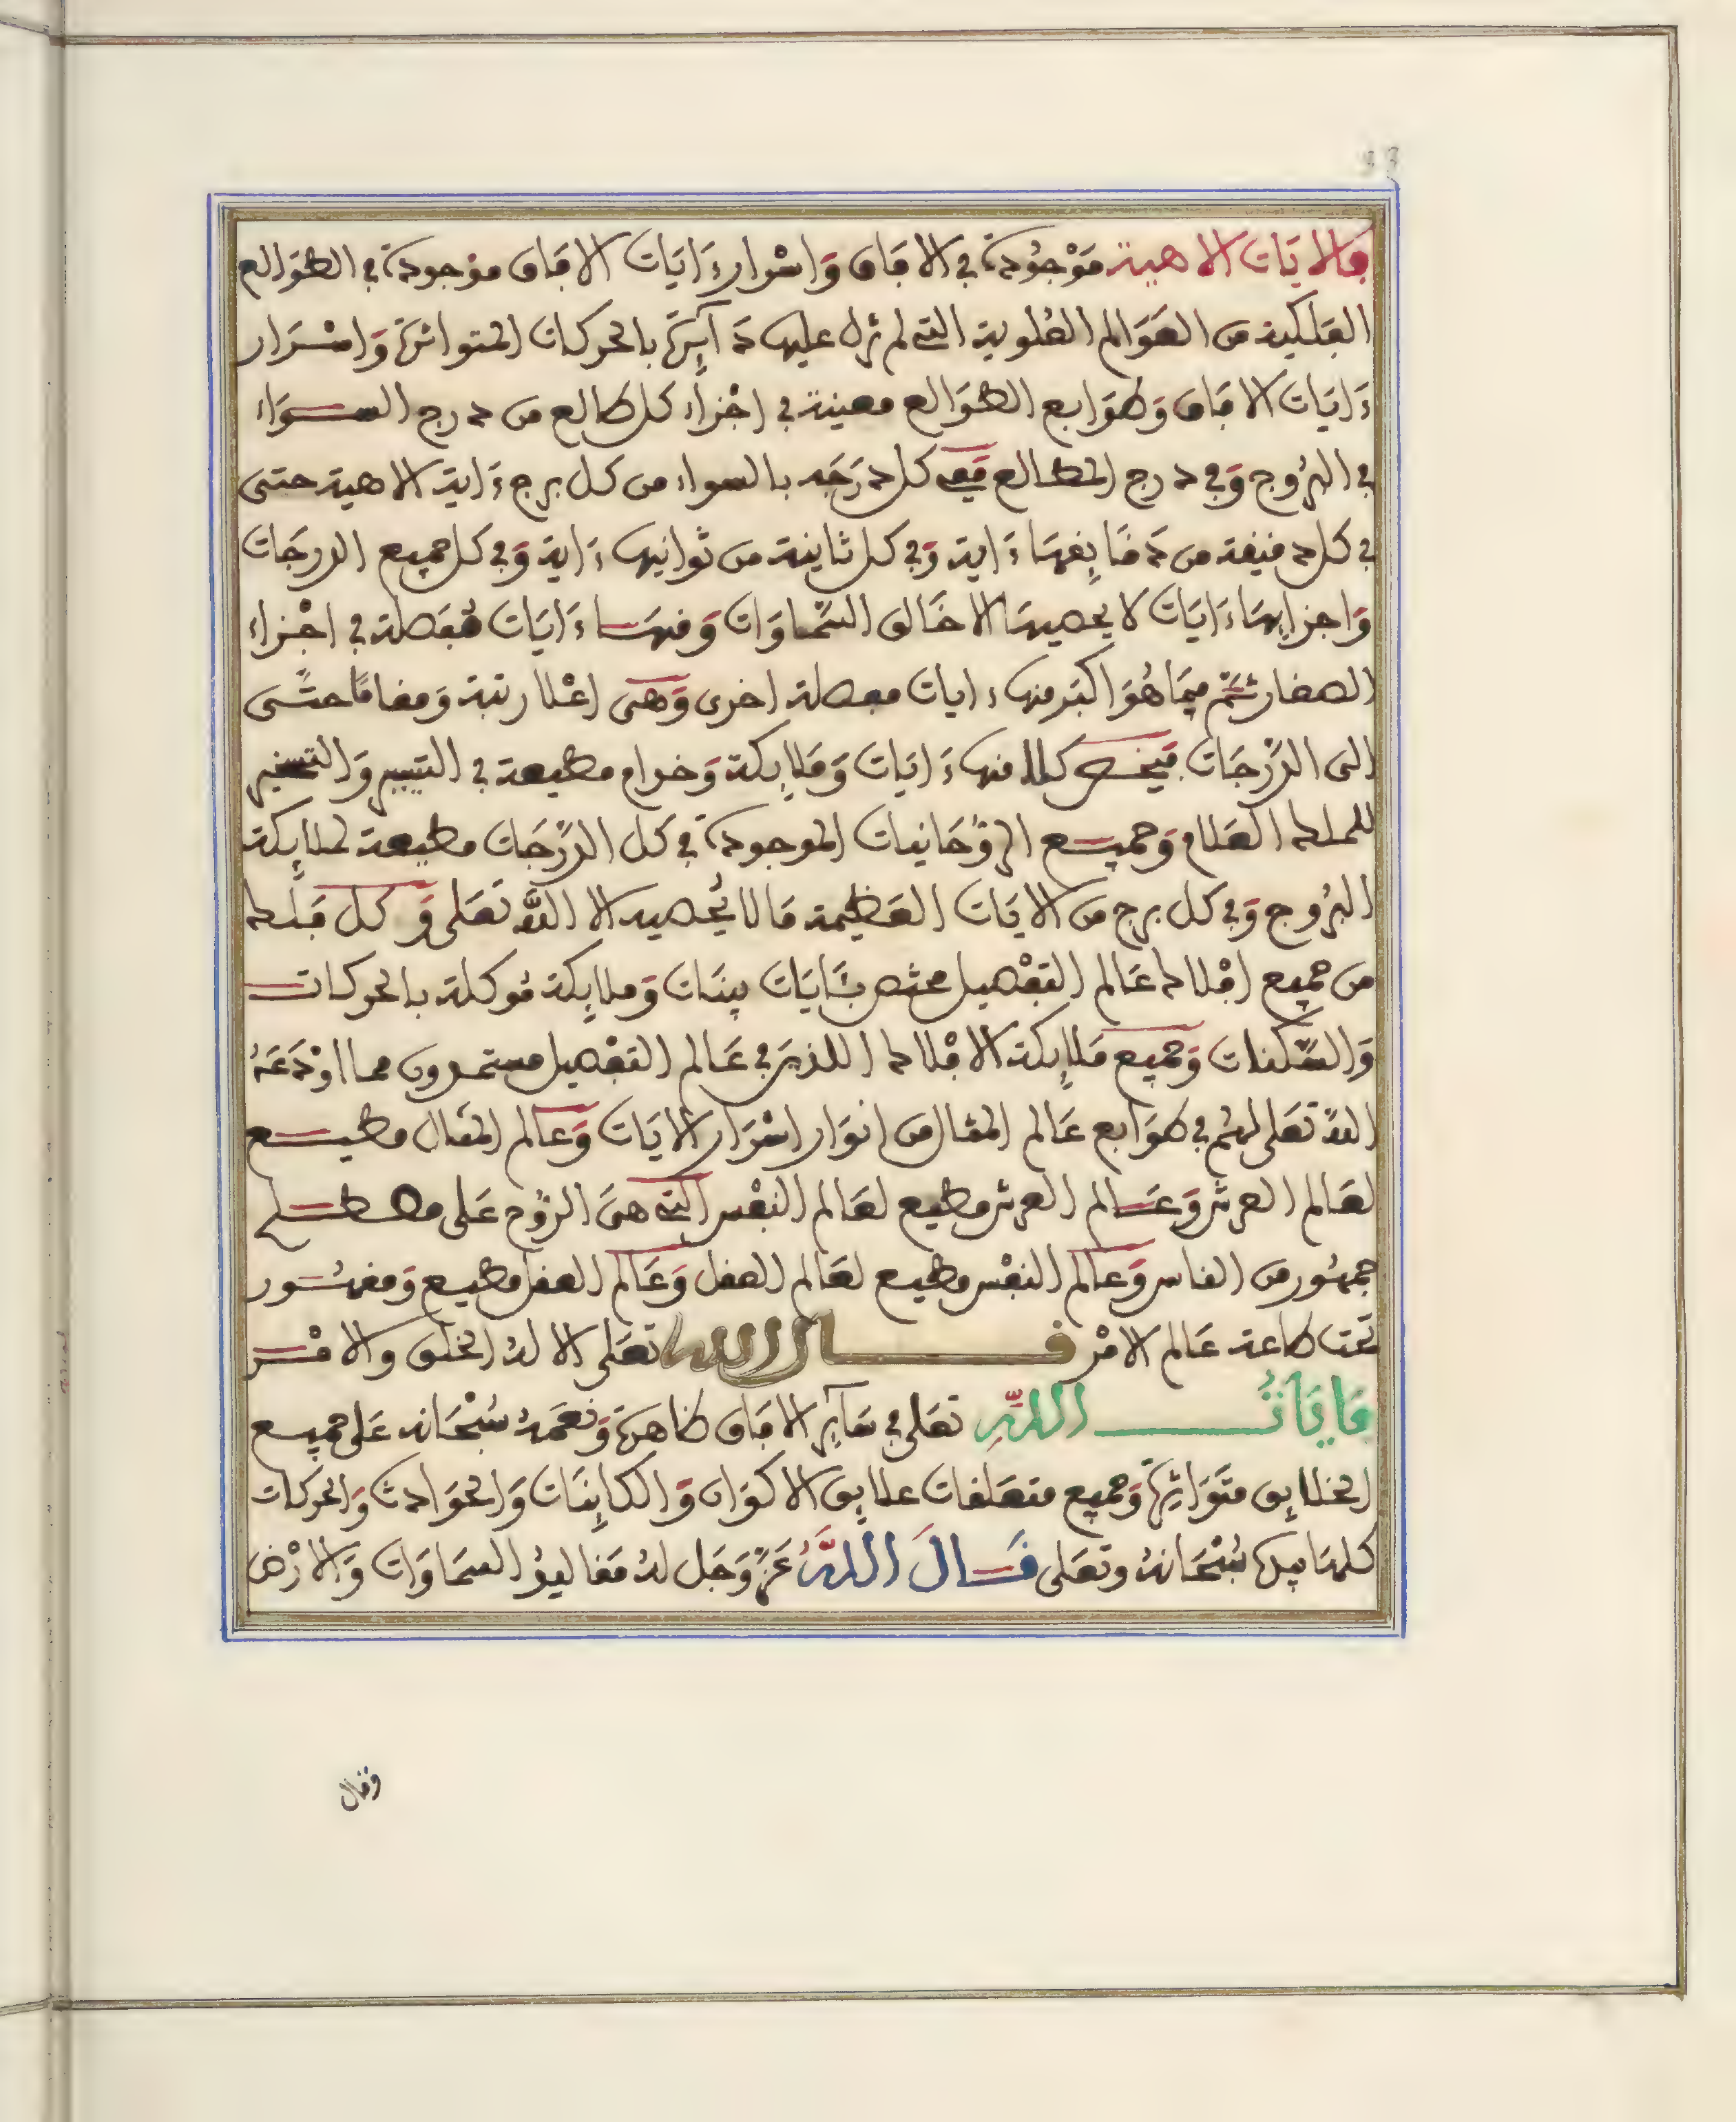 33
فالايَات الاهية مَوْجُودَة في الافَاق وَاسْرار ءَايَات الافاق موجودة في الطوَالع
الفلكية من العَوَالم العُلوية التي لم تزل عليها دَآئِرَة بالحركات المتواترة وَاسْرَار
ءَايَات الافَاق وَطوَابع الطوَالع معينة في اجْزاء كل طالع من درج السوَاء
في البرُوج وَفي درج المطالع فَفِي كل دَرَجَه بالسواء من كل برج ءَاية الاهية حتى
في كل دقيقة من دَقَايِقهَا ءَاية وَفي كل ثاينة من ثوانيها ءَاية وَفي كل جميع الدرجَات
وَاجزايهَا ءَايَات لا يحصيهَا الا خَالق السَّماوَات وَمنهَا ءَايَات مُفَصلة في اجْزاء
الصغار ثمَّ فيمَا هُوَ اكبَر منها ءايات مفصلة اخرى وَهيَ اعْلا رتبة وَمقامًا حتَّى
الى الدَّرَجَات فَيختص كلا منها ءَايَات وَمَلايِكة وَخدام مطيعة في التيسير وَالتسخير
للملك العَلام وَجميع الرُّوحَانيات الموجودة في كل الدَّرَجَات مطيعة لملايِكة
البرُوج وَفي كل برج من الايَات العَظيمة مَا لا يُحصيه الا اللَّه تعَلى وَكل فَلك
من جميع افْلاك عَالم التفْصيل مختص بـَٔايَات بينَات وَملايِكة مُوكلة بالحركات
وَالسَّكنات وَجميع مَلايِكة الافْلاك اللذينَ في عَالم التفْصيل مستمدون مما اوْدَعَهُ
اللَّه تعَلى لهُم في طوَابع عَالم المثال من انوَار اسْرَار الايَات وَعَالم المثال مطيع
لعَالم العرش وَعَالم العرش مطيع لعَالم النفْس التي هيَ الرُّوح عَلى مصطلح
جمهُور من الناس وَعَالم النفْس مطيع لعَالم العقل وَعَالم العقل مطيع وَمقهُور
تحت طاعة عَالم الامْر قال الله تعَلى الا لهُ الخلق والامْر
فَايَاتُ اللَّهِ تعَلى في سَآئِر الافَاق ظاهرَة وَنعَمهُ سُبْحَانه عَلى جميع
الخلايِق متوَاتِرَة وَجميع متعَلقات علايِق الاكوَان وَالكايِنَات وَالحوَادث وَالحركات
كلهَا بيدهِ سُبْحَانهُ وتعَلى قَالَ اللَّهُ عَزَّ وَجَل لهُ مَقاليدُ السمَاوَات وَالارْض
وقال